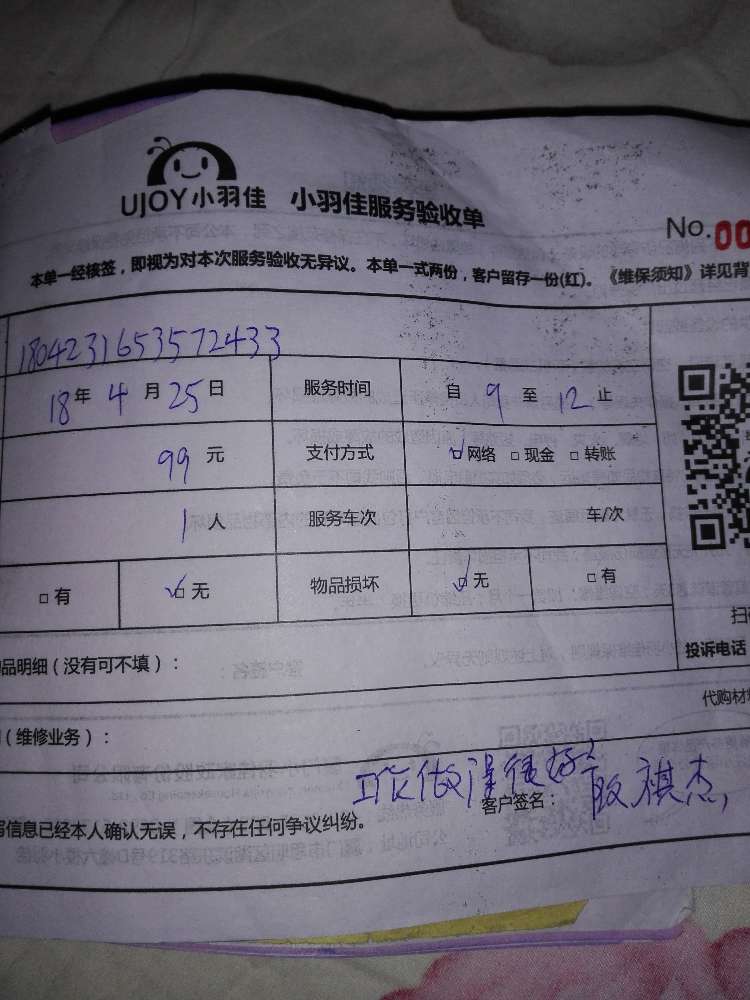 UJOY小羽佳 小羽佳服务验收单
No.00
本单一经核签，即视为对本次服务验收无异议。本单一式两份，客户留存一份(红)。《维保须知》详见背
1804231653572433
18年4月25日 服务时间 自9至12止
99元 支付方式 网络 现金 转账
1人 服务车次 车/次
有 无 物品损坏 无 有
品明细（没有可不填）：
投诉电话
代购材
（维修业务）：
工作做得很好
客户签名： 祺杰
信息已经本人确认无误，不存在任何争议纠纷。